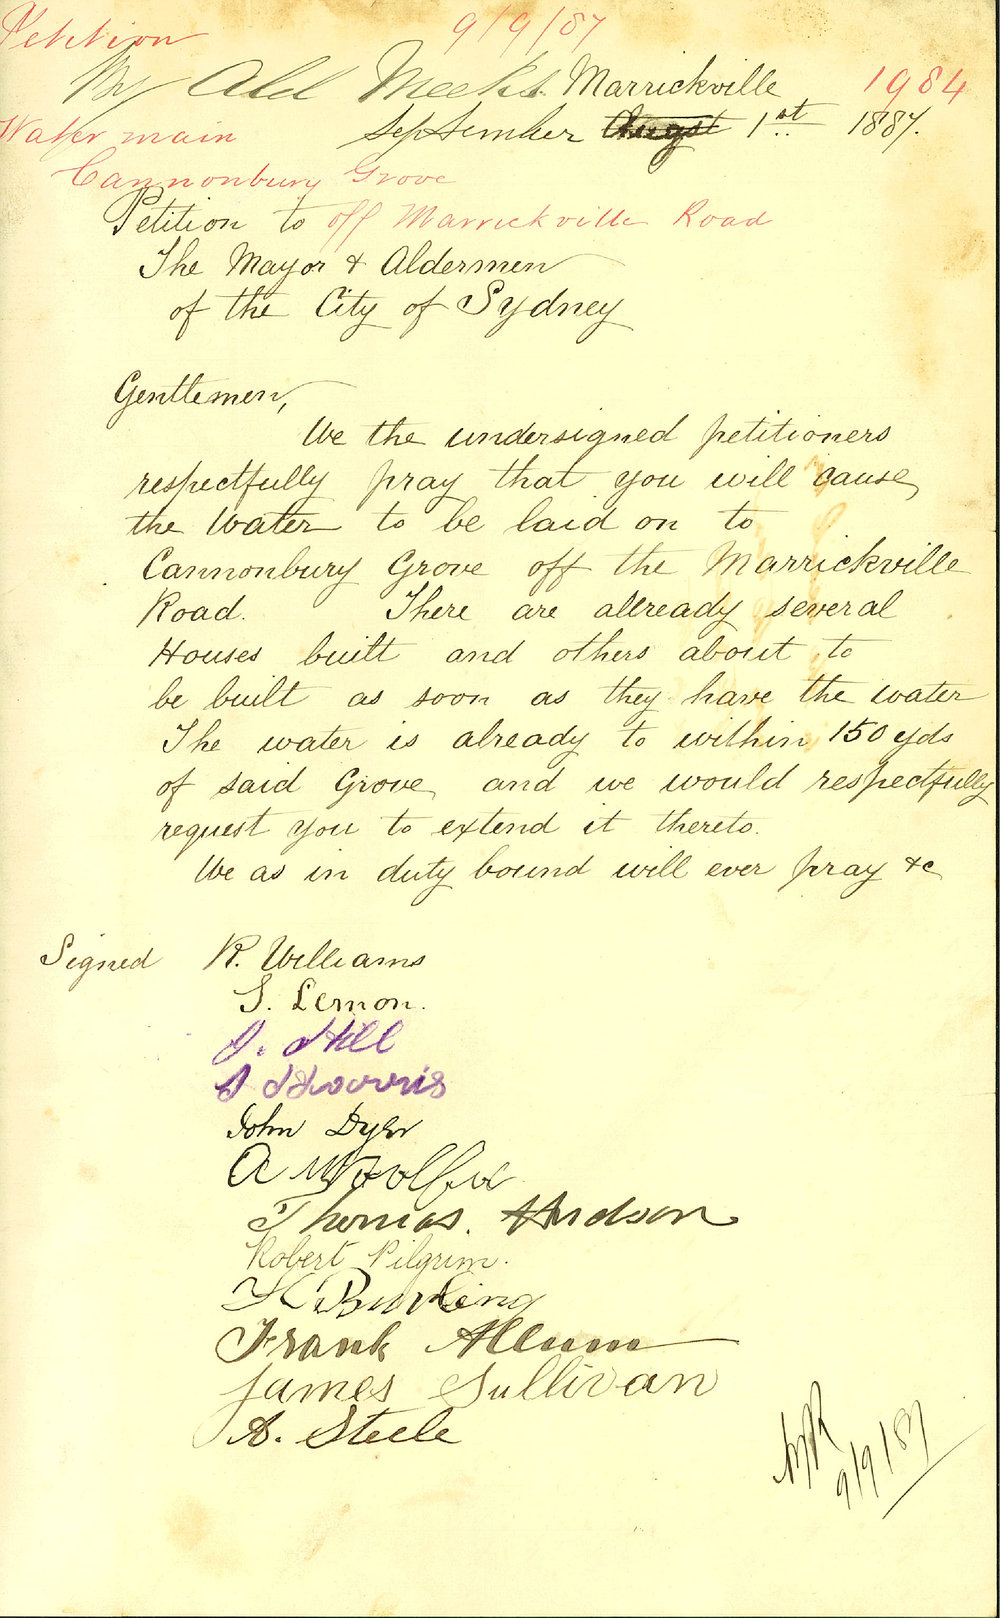 Petition 9/9/87
By Ald Meeks Marrickville 1984
Water main September August 1st 1887.
Cannonbury Grove
Petition to off Marrickville Road
The Mayor & Aldermen
of the City of Sydney
Gentlemen,
We the undersigned petitioners
respectfully pray that you will cause
the Water to be laid on to
Cannonbury Grove off the Marrickville
Road. There are allready several
Houses built and others about to
be built as soon as they have the water
The water is already to within 150 yds
of said Grove and we would respectfully
request you to extend it thereto.
We as in duty bound will ever pray &c
Signed R. Williams
S. Lemon.
Hill
Harris
John Dyer
A
Thomas. Hudson
Robert Pilgrim.
Frank Allum
James Sullivan
A. Steele
9/9/87